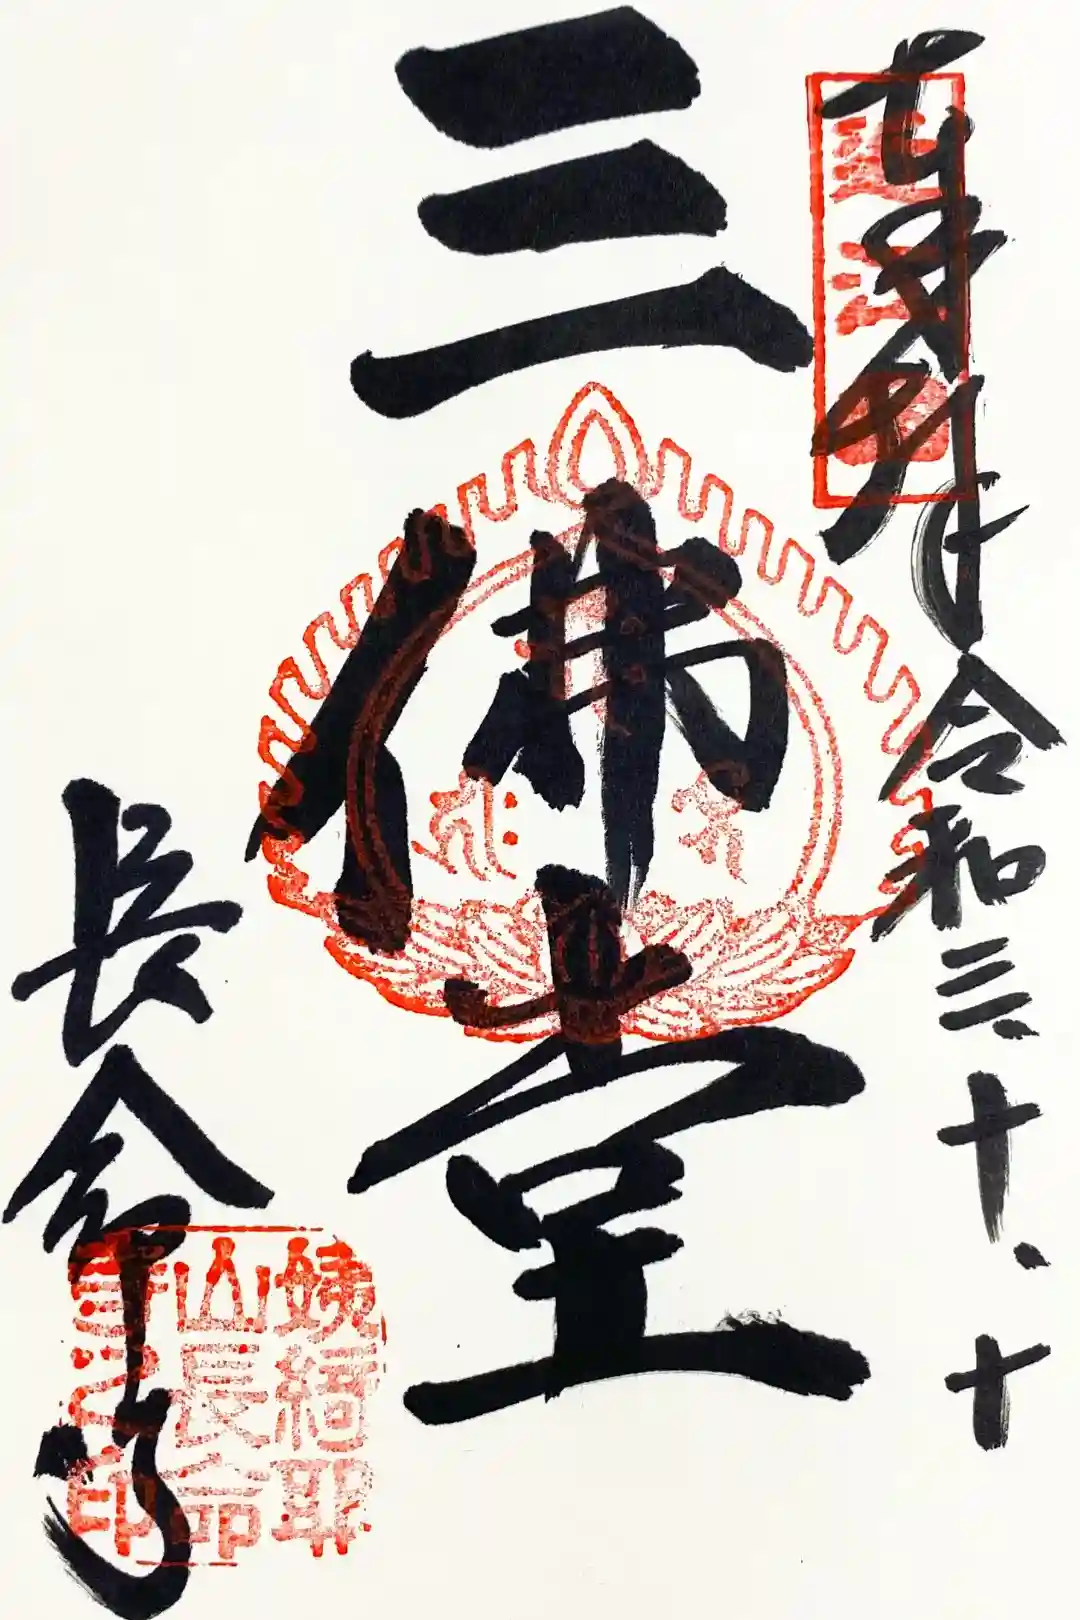 奉拝 令和三.十.十
近江国
三佛堂
長命寺
姨綺耶山長命寺之印